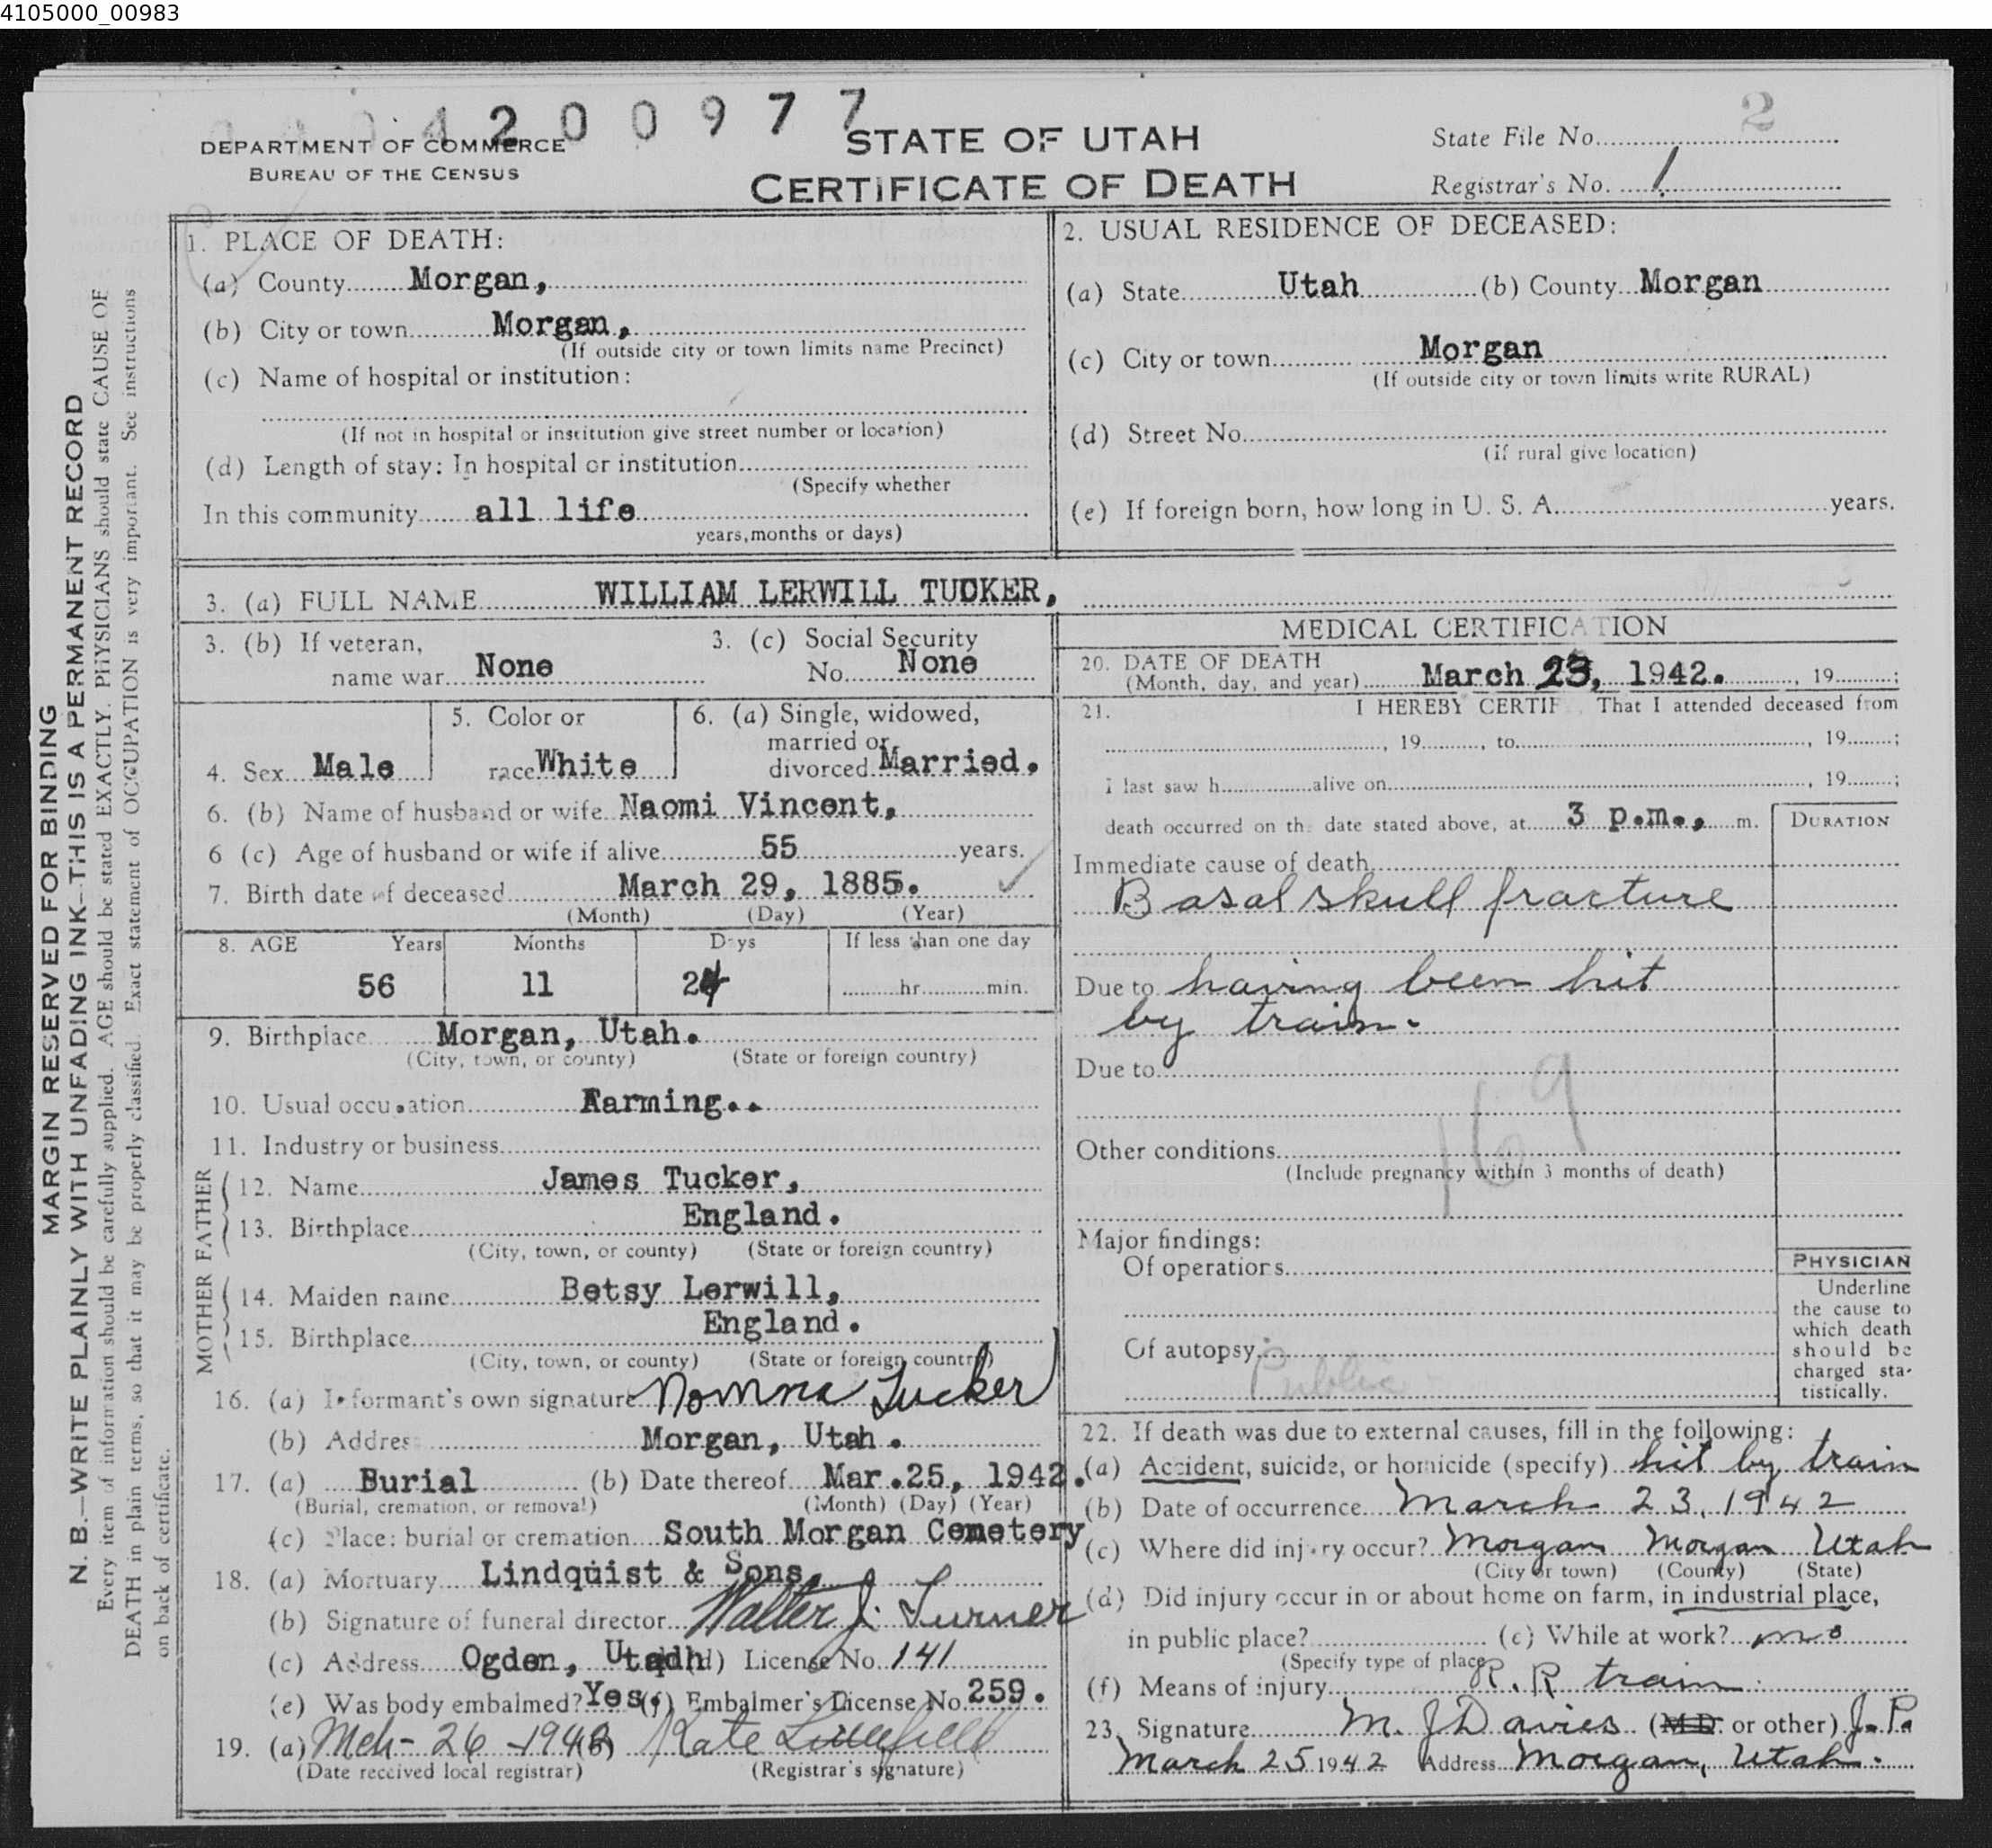 4105000_00983
4 2 0 0 9 7 7
2
DEPARTMENT OF COMMERCE
BUREAU OF THE CENSUS
STATE OF UTAH
CERTIFICATE OF DEATH
State File No.
Registrar's No. 1
MARGIN RESERVED FOR BINDING
N. B.—WRITE PLAINLY WITH UNFADING INK—THIS IS A PERMANENT RECORD
Every item of information should be carefully supplied. AGE should be stated EXACTLY. PHYSICIANS should state CAUSE OF
DEATH in plain terms, so that it may be properly classified. Exact statement of OCCUPATION is very important. See instructions
on back of certificate.
1. PLACE OF DEATH:
(a) County Morgan,
(b) City or town Morgan,
(If outside city or town limits name Precinct)
(c) Name of hospital or institution:
(If not in hospital or institution give street number or location)
(d) Length of stay: In hospital or institution
(Specify whether
In this community all life
years, months or days)
2. USUAL RESIDENCE OF DECEASED:
(a) State Utah (b) County Morgan
(c) City or town Morgan
(If outside city or town limits write RURAL)
(d) Street No.
(if rural give location)
(e) If foreign born, how long in U. S. A. years.
3. (a) FULL NAME WILLIAM LERWILL TUCKER,
3. (b) If veteran,
name war None
3. (c) Social Security
No. None
4. Sex Male
5. Color or
race White
6. (a) Single, widowed,
married or
divorced Married.
6. (b) Name of husband or wife Naomi Vincent,
6 (c) Age of husband or wife if alive 55 years.
7. Birth date of deceased March 29, 1885.
(Month) (Day) (Year)
8. AGE Years Months Days If less than one day
56 11 24 hr. min.
9. Birthplace Morgan, Utah.
(City, town, or county) (State or foreign country)
10. Usual occupation Farming..
11. Industry or business
FATHER
12. Name James Tucker,
13. Birthplace England.
(City, town, or county) (State or foreign country)
MOTHER
14. Maiden name Betsy Lerwill,
15. Birthplace England.
(City, town, or county) (State or foreign country)
16. (a) Informant's own signature Tucker
(b) Address Morgan, Utah.
17. (a) Burial (b) Date thereof Mar.25, 1942.
(Burial, cremation, or removal) (Month) (Day) (Year)
(c) Place: burial or cremation South Morgan Cemetery
18. (a) Mortuary Lindquist & Sons,
(b) Signature of funeral director Walter J. Turner
(c) Address Ogden, Utah (d) License No. 141
(e) Was body embalmed? Yes. (f) Embalmer's License No. 259.
19. (a) Mch- 26 -1942 (b) Kate
(Date received local registrar) (Registrar's signature)
MEDICAL CERTIFICATION
20. DATE OF DEATH
(Month, day, and year) March 23, 1942. , 19 ;
21. I HEREBY CERTIFY, That I attended deceased from
, 19 , to , 19 ;
I last saw h alive on , 19 ;
death occurred on the date stated above, at 3 p.m., m.
DURATION
Immediate cause of death
Basal skull fracture
Due to having been hit
by train.
Due to
169
Other conditions
(Include pregnancy within 3 months of death)
Major findings:
Of operations
Of autopsy
Public
PHYSICIAN
Underline
the cause to
which death
should be
charged sta-
tistically.
22. If death was due to external causes, fill in the following:
(a) Accident, suicide, or homicide (specify) hit by train
(b) Date of occurrence March 23, 1942
(c) Where did injury occur? Morgan Morgan Utah
(City or town) (County) (State)
(d) Did injury occur in or about home on farm, in industrial place,
in public place? (e) While at work? no
(Specify type of place)
(f) Means of injury R. R train
23. Signature M. J Davies (M.D. or other) J. P.
March 25 1942 Address Morgan, Utah.